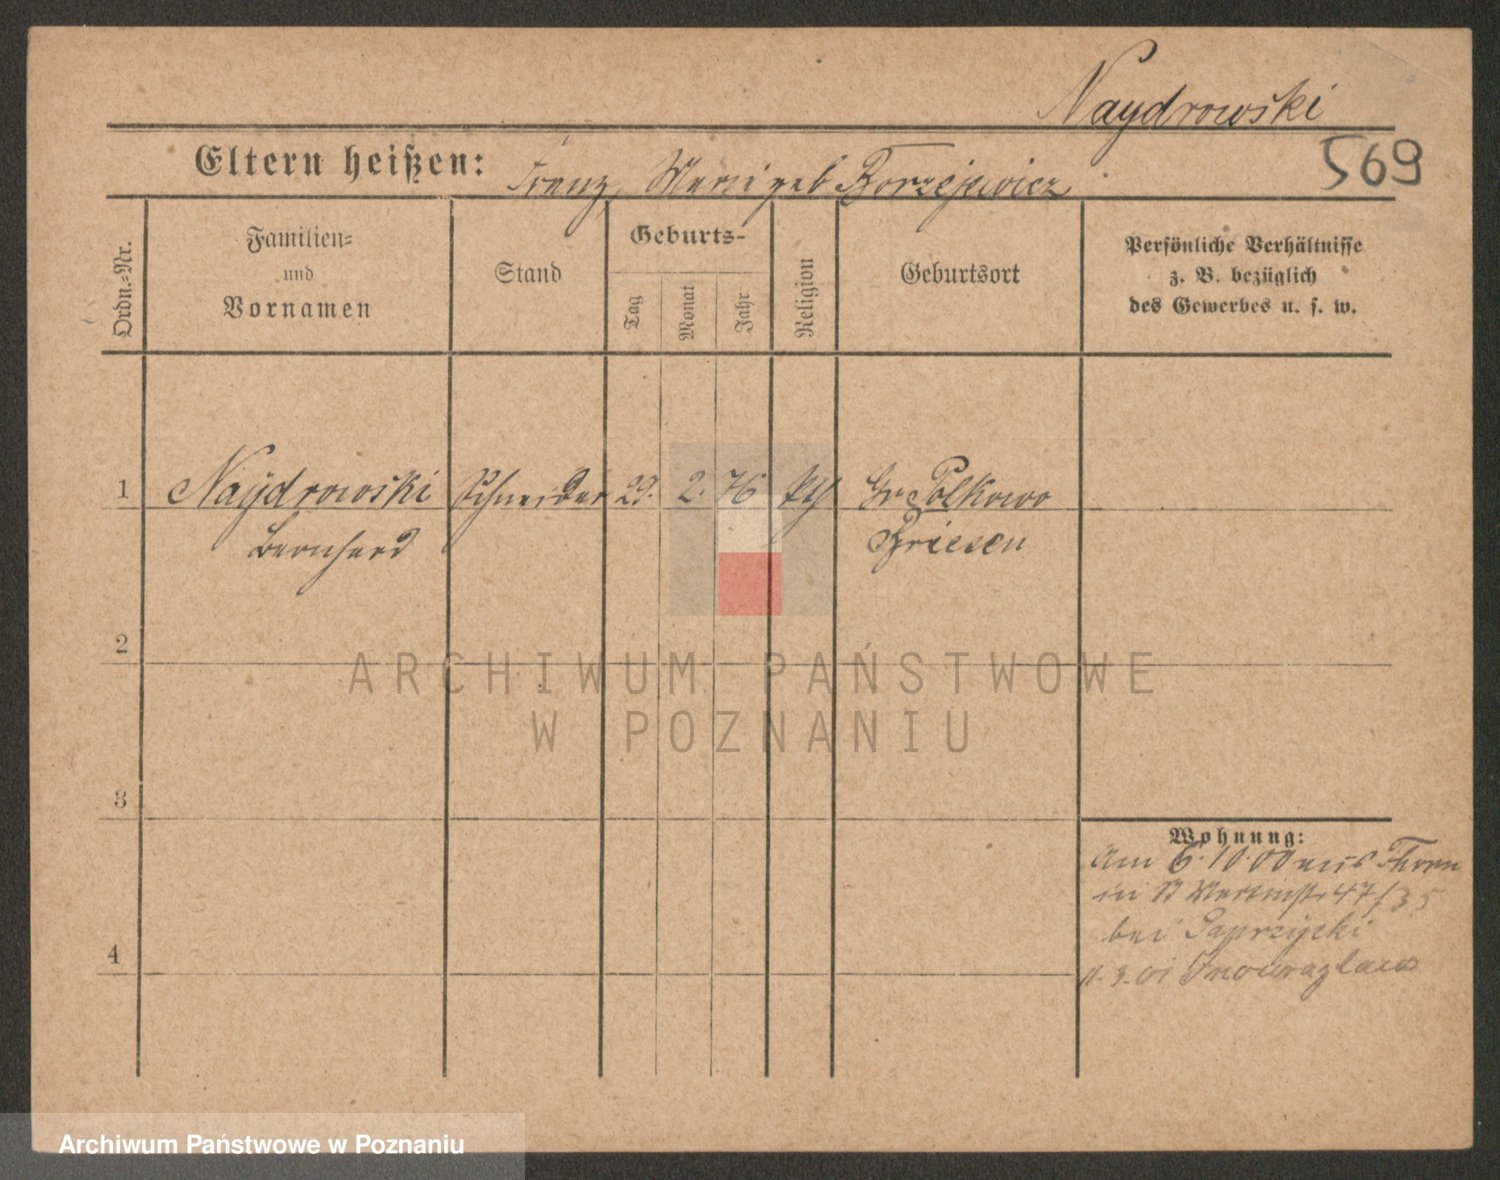 Naydrowski
569
Eltern heißen: Franz, Maria geb Borzejewicz
Ordn.-Nr.
Familien-
und
Vornamen
Stand
Geburts-
Tag
Monat
Jahr
Religion
Geburtsort
Persönliche Verhältnisse
z. B. bezüglich
des Gewerbes u. s. w.
1 Naydrowski Schneider 29. 2. 76 kth Gr Polkowo
Bernhard Briesen
2
3
4
Wohnung:
Am 6.10.00 aus Thorn
in St Martinstr 47/35
bei Paprzycki
11.3.01 Inowrazlaw
ARCHIWUM PAŃSTWOWE
W POZNANIU
Archiwum Państwowe w Poznaniu